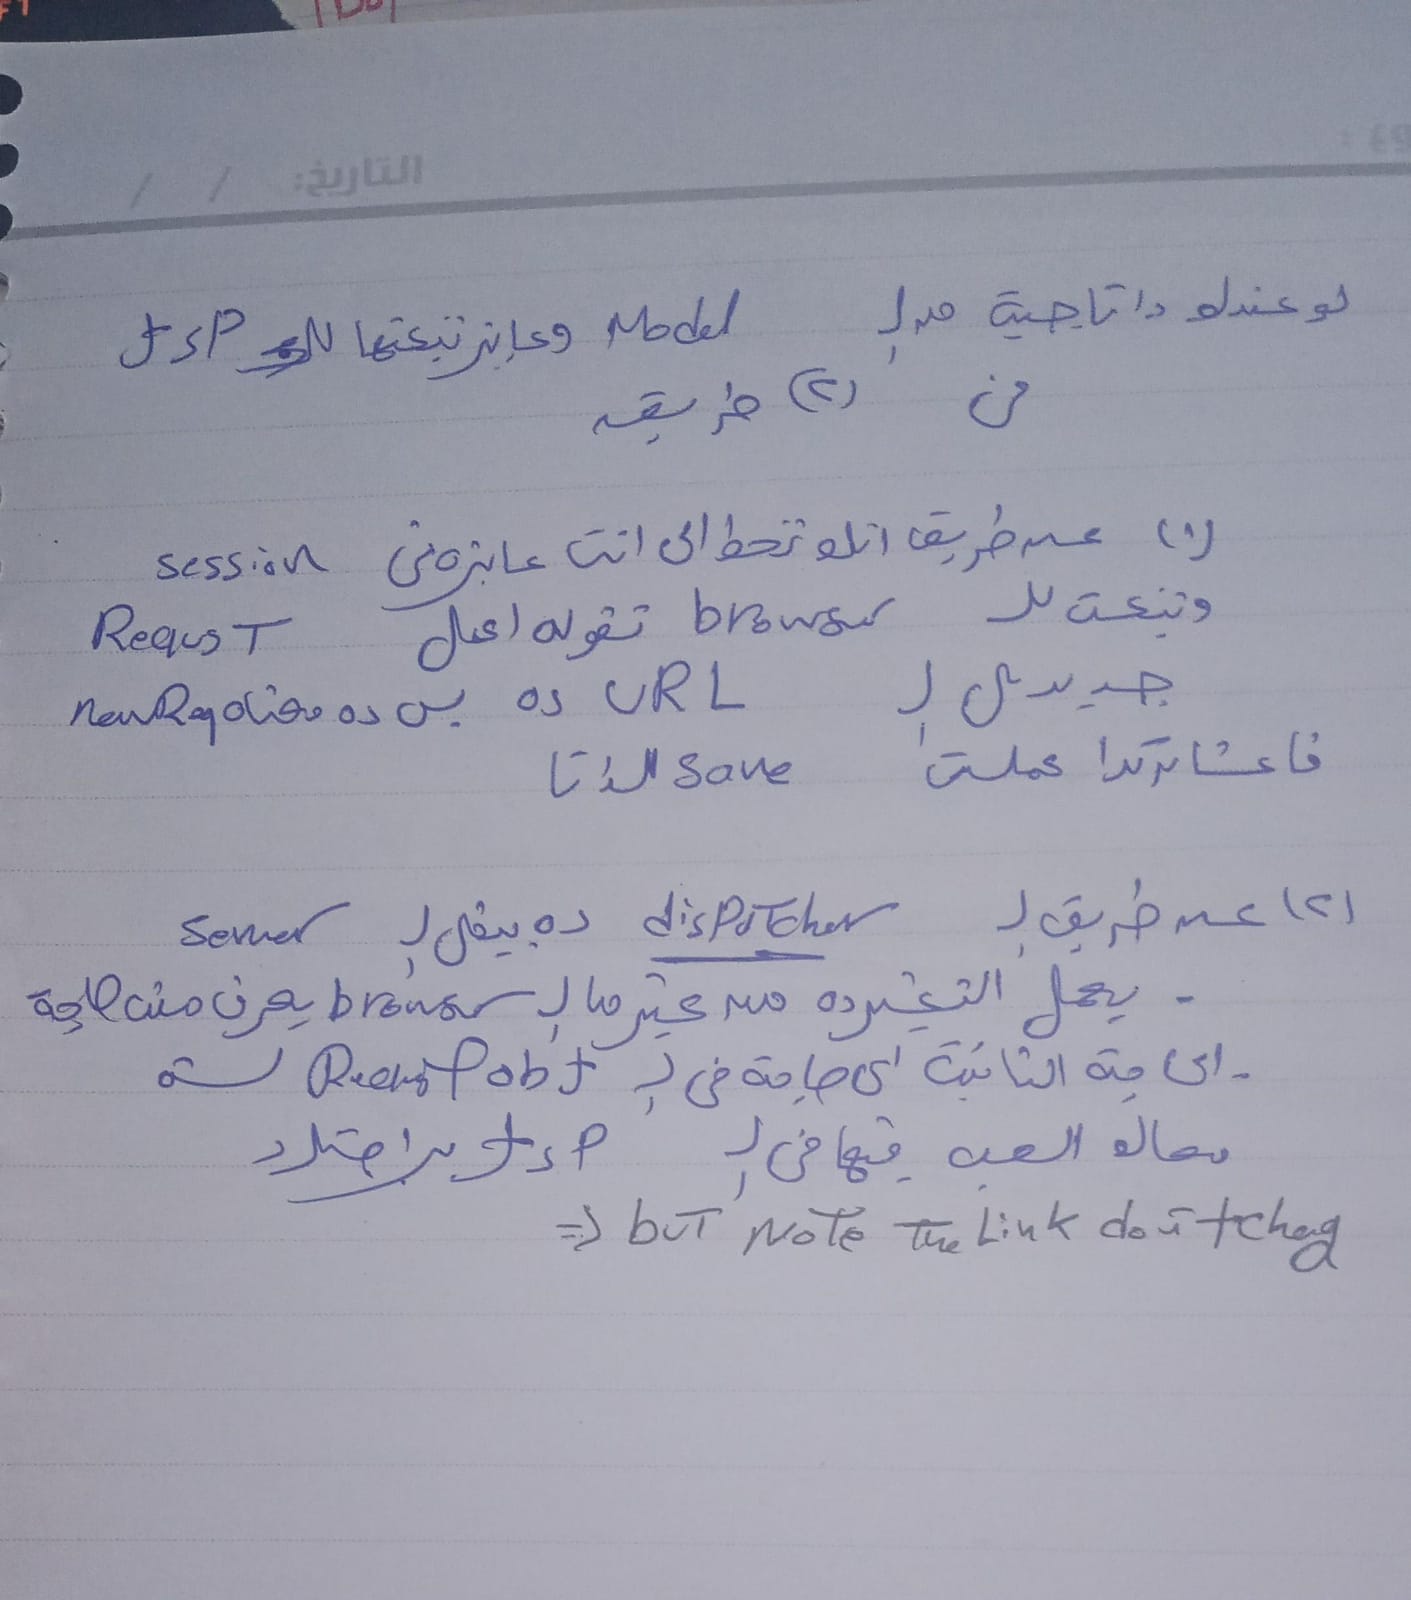 التاريخ: / /
لو عندك داتا جاية من ال Model وعايز تبعتها لل JSP
في (٢) طريقه
(١) عن طريق انك تحط الى انت عايزه فى session
وتبعت لل browser تقوله اعمل Requst
جديد على ال URL ده بس ده معناه new Req
فا عشان كدا عملت save للداتا
(٢) عن طريق ال dispatcher ده بيخلى ال server
- يعمل التغير ده من غير ما ال browser يعرف
- الحاجة التانية اى حاجة فى ال Request obj لسه
معاك العب فيها فى ال JSP براحتك
=> but Note The Link don't chang